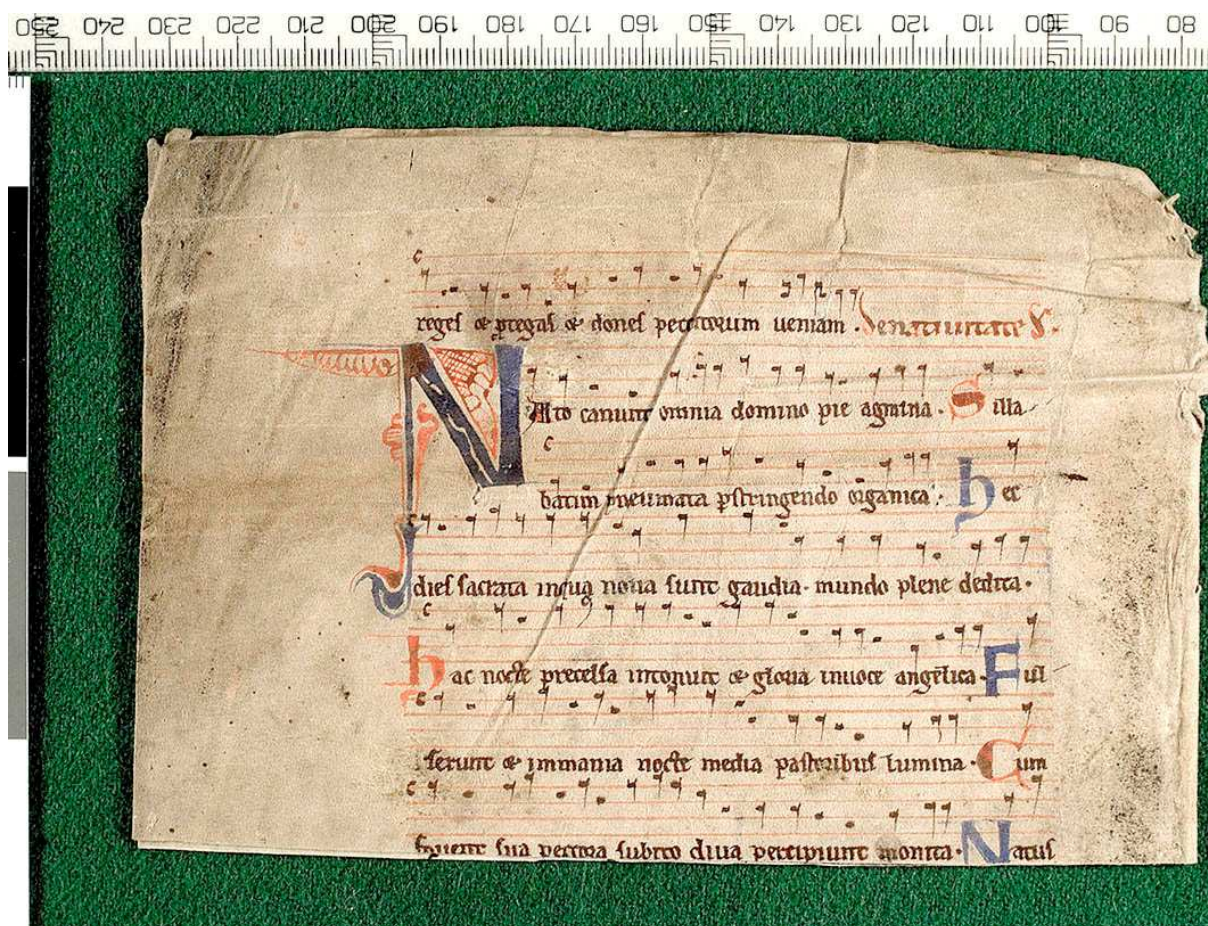 250 240 230 220 210 200 190 180 170 160 150 140 130 120 110 100 90 80
reges & ꝓtegas & dones peccatorum ueniam. De natiuitate
NAto canunt omnia domino pie agmina. Silla
batim pneumata pstringendo organica. hec
dies sacrata in qua noua sunt gaudia. mundo plene dedita.
hac nocte precelsa intonuit & gloria in uoce angelica. Ful
serunt & immania nocte media pastoribus lumina. Cum
fouent sua pectora subito diua percipiunt monita. Natus